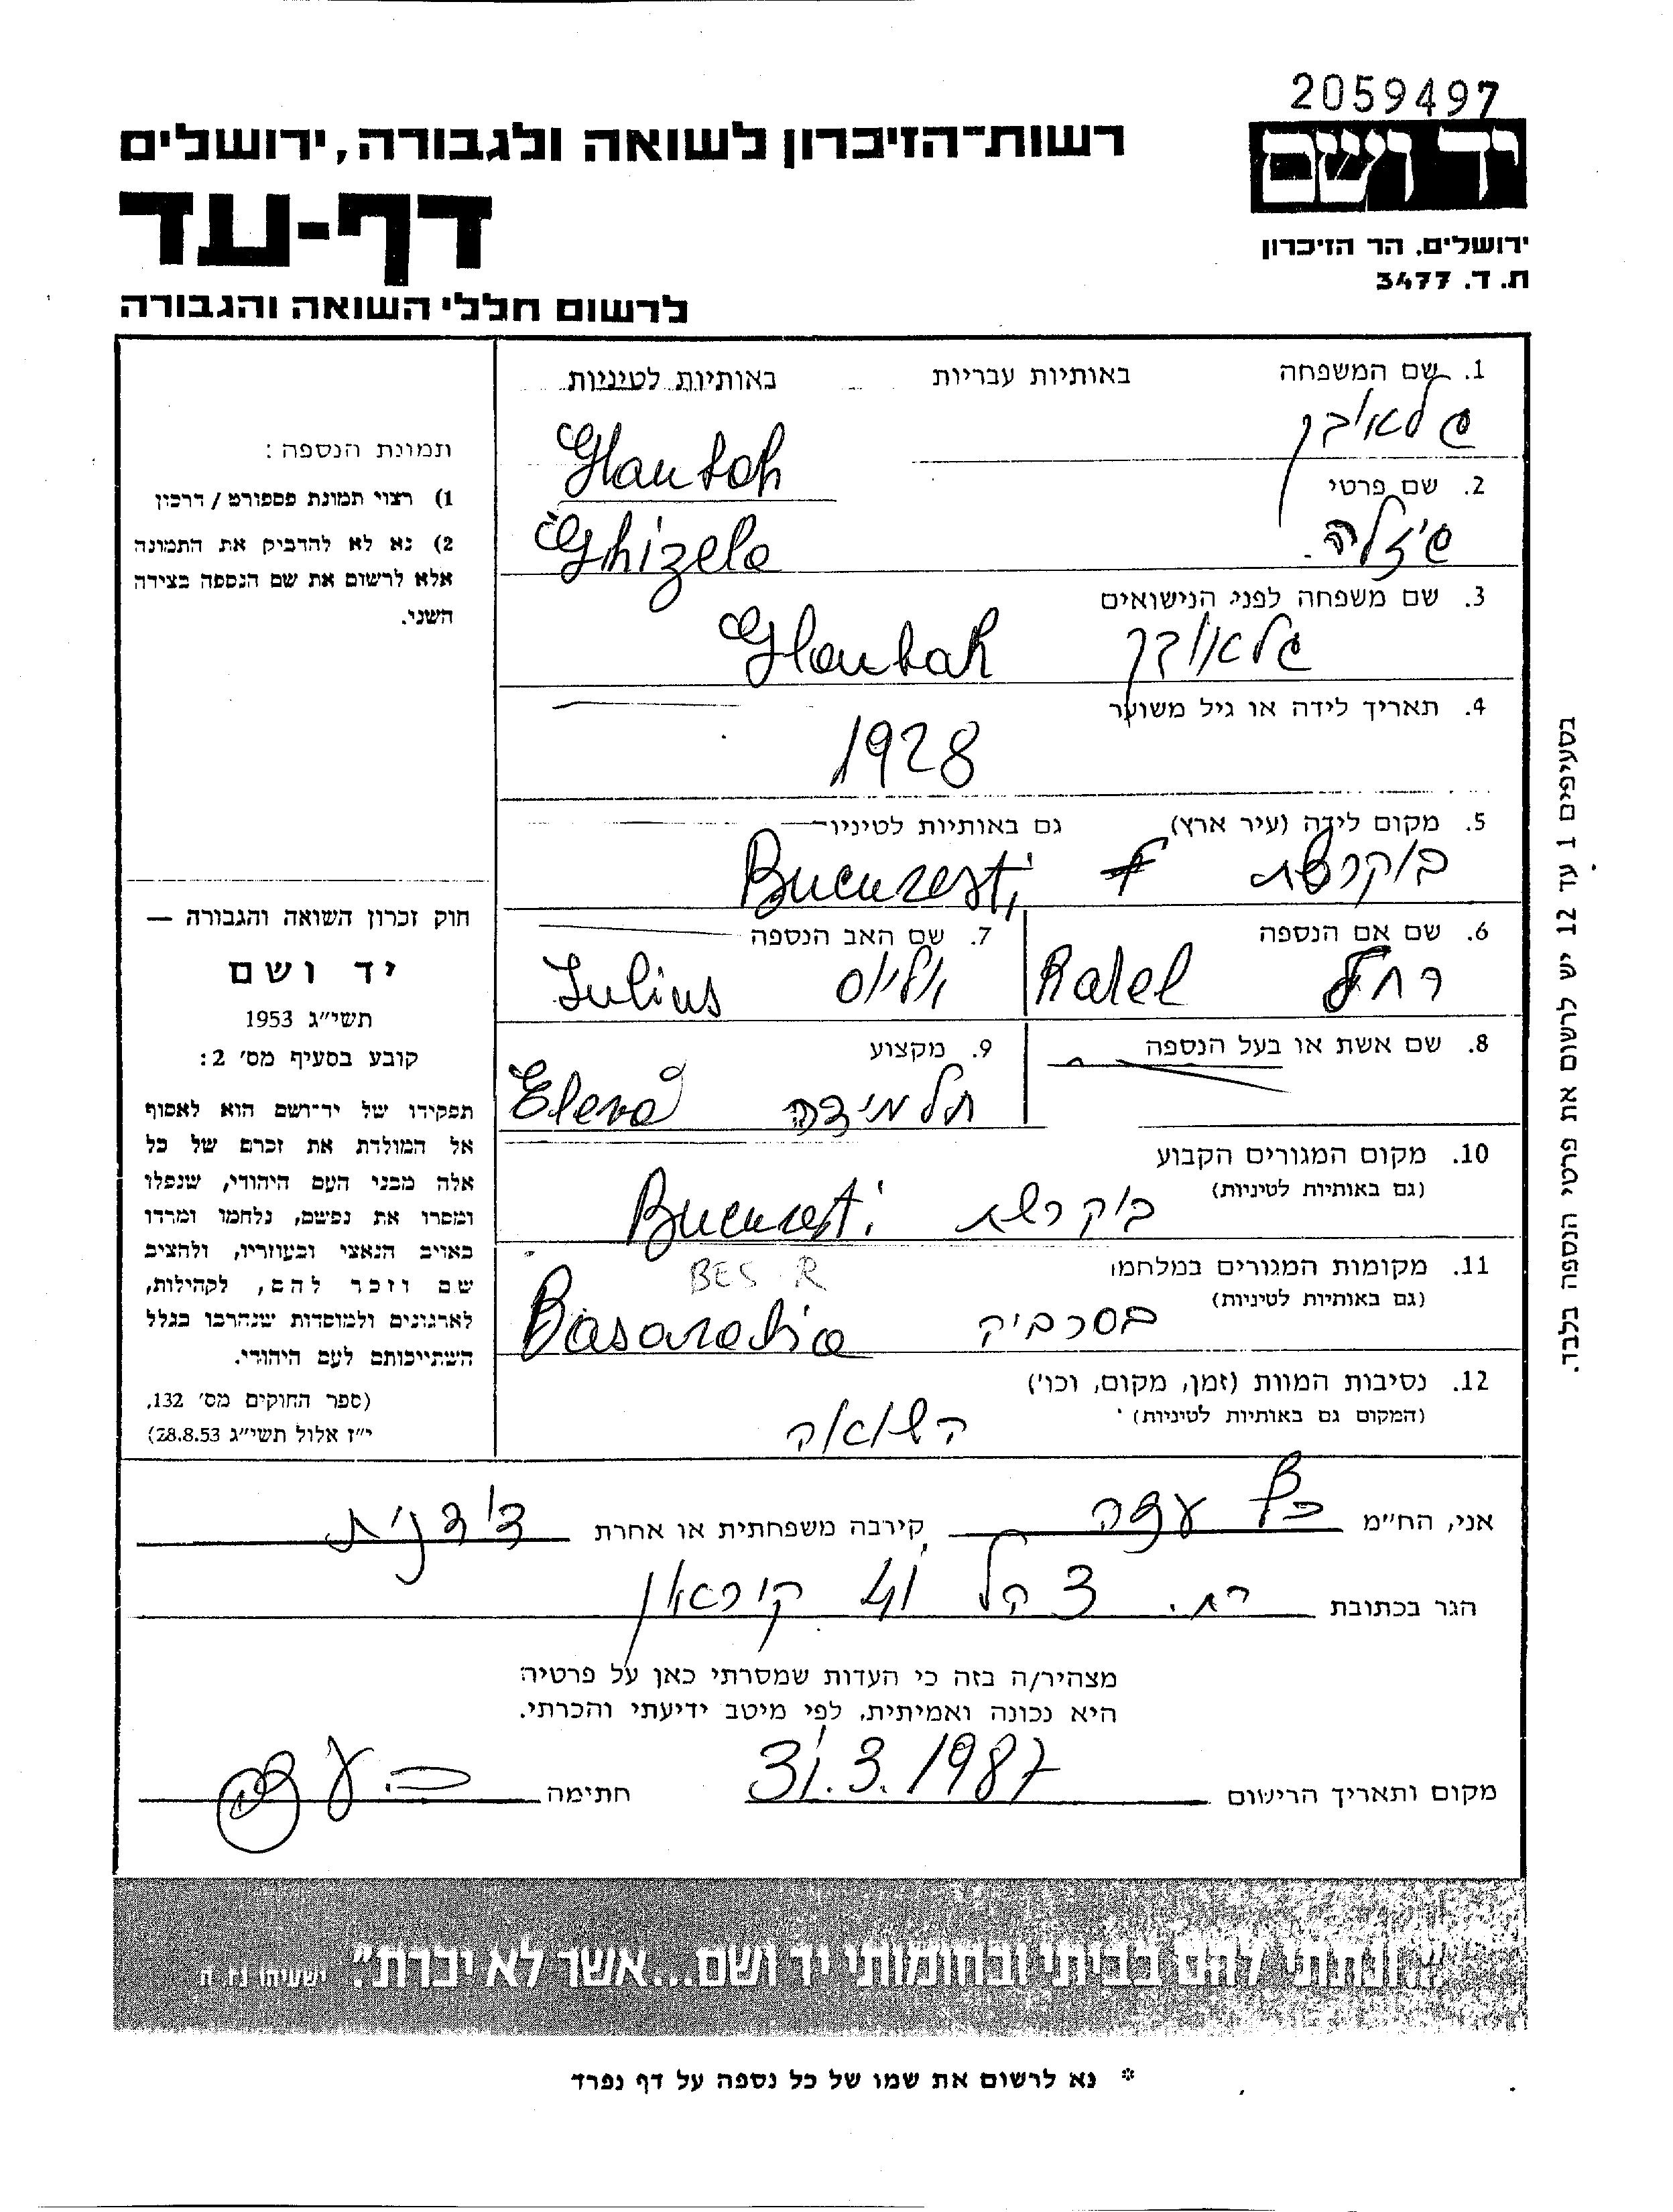 2059497
יד ושם
ירושלים, הר הזיכרון
ת. ד. 3477
רשות־הזיכרון לשואה ולגבורה, ירושלים
דף-עד
לרשום חללי השואה והגבורה
1. שם המשפחה באותיות עבריות באותיות לטיניות
2. שם פרטי
גיזלה Ghizela
3. שם משפחה לפני הנישואים
4. תאריך לידה או גיל משוער
1928
5. מקום לידה (עיר ארץ) גם באותיות לטיניות
בוקרשט Bucuresti
6. שם אם הנספה
רחל Rahel
7. שם האב הנספה
Iulius
8. שם אשת או בעל הנספה
9. מקצוע
תלמידה Elevă
10. מקום המגורים הקבוע
(גם באותיות לטיניות)
בוקרשט Bucuresti
11. מקומות המגורים במלחמה
(גם באותיות לטיניות)
BES R
בסרביה Basarabia
12. נסיבות המוות (זמן, מקום, וכו')
(המקום גם באותיות לטיניות)
השואה
תמונת הנספה:
1) רצוי תמונת פספורט / דרכון
2) נא לא להדביק את התמונה
אלא לרשום את שם הנספה בצידה
השני.
חוק זכרון השואה והגבורה —
יד ושם
תשי״ג 1953
קובע בסעיף מס׳ 2:
תפקידו של יד־ושם הוא לאסוף
אל המולדת את זכרם של כל
אלה מבני העם היהודי, שנפלו
ומסרו את נפשם, נלחמו ומרדו
באויב הנאצי ובעוזריו, ולהציב
שם וזכר להם, לקהילות,
לארגונים ולמוסדות שנהרבו בגלל
השתייכותם לעם היהודי.
(ספר החוקים מס׳ 132,
י״ז אלול תשי״ג 28.8.53)
בסעיפים 1 עד 12 יש לרשום את פרטי הנספה בלבד.
אני, הח״מ כץ עדה קירבה משפחתית או אחרת דודנית
הגר בכתובת צהל
מצהיר/ה בזה כי העדות שמסרתי כאן על פרטיה
היא נכונה ואמיתית, לפי מיטב ידיעתי והכרתי.
מקום ותאריך הרישום 31.3.1987 חתימה
״ונתתי להם בביתי ובחומותי יד ושם...אשר לא יכרת״. ישעיהו נו, ה
* נא לרשום את שמו של כל נספה על דף נפרד